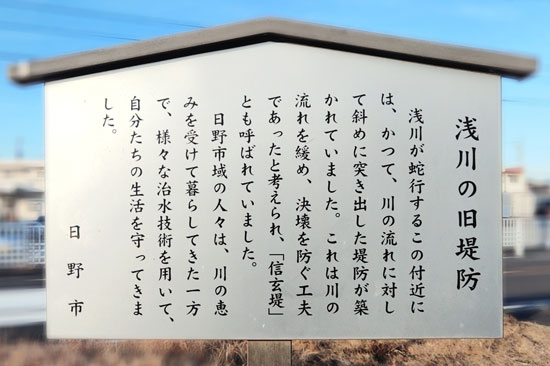 浅川の旧堤防
浅川が蛇行するこの付近に
は、かつて、川の流れに対し
て斜めに突き出した堤防が築
かれていました。これは川の
流れを緩め、決壊を防ぐ工夫
であったと考えられ、「信玄堤」
とも呼ばれていました。
日野市域の人々は、川の恵
みを受けて暮らしてきた一方
で、様々な治水技術を用いて、
自分たちの生活を守ってきま
した。
日野市